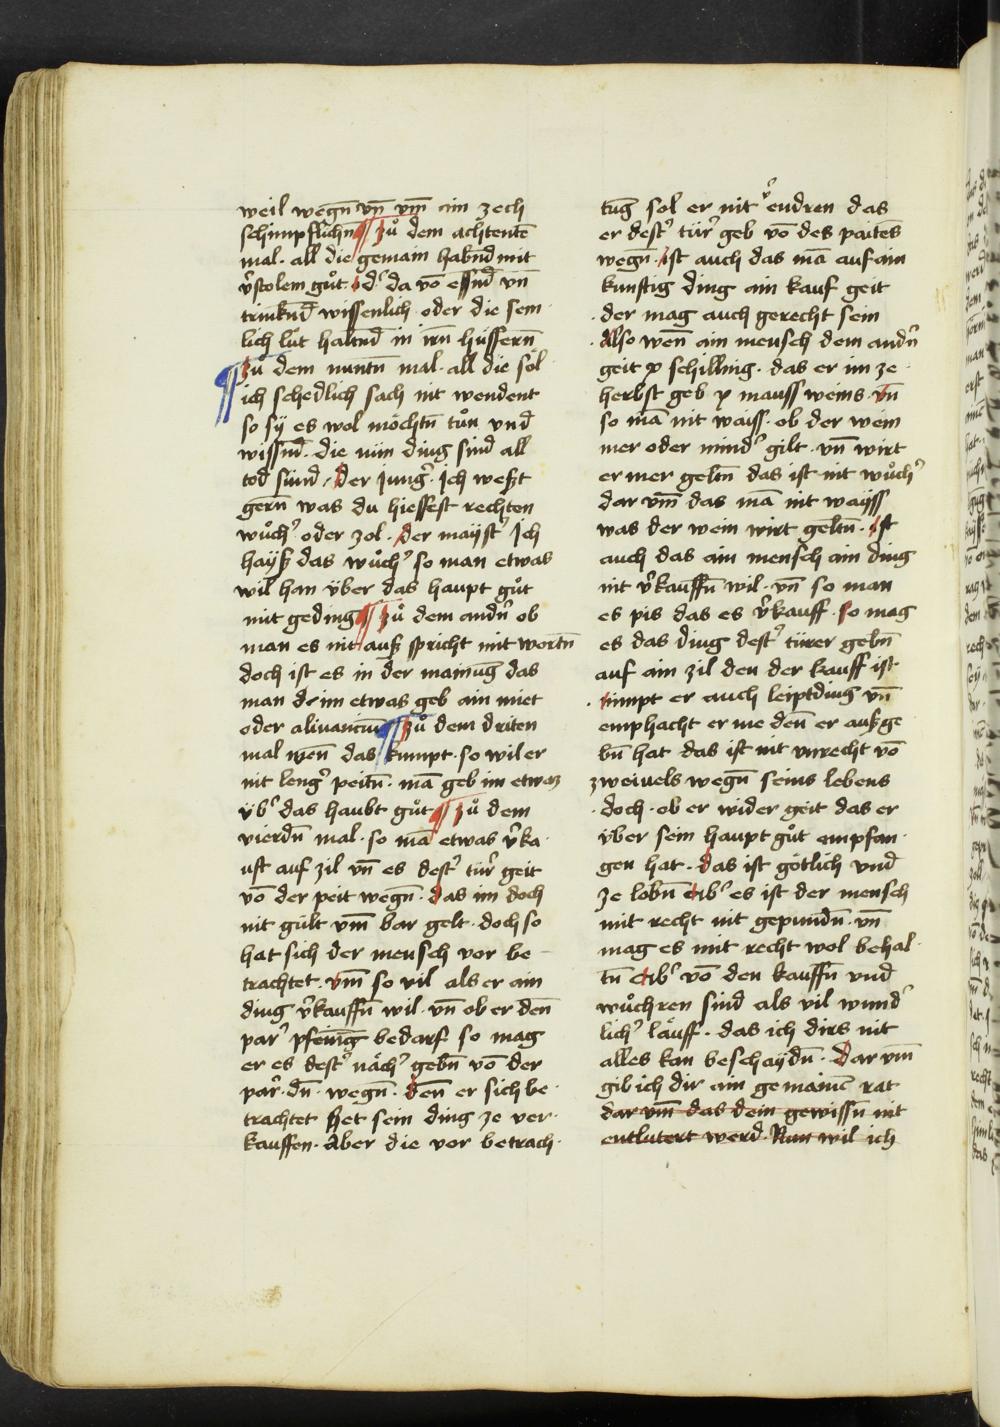 weil wegn̄ vn̄ vm̄ ain zech
schimpflichn̄ ¶ Zů dem achtentē
mal · all die gemain habnd̄ mit
v̓stolem gůt · od̓ da vō essnd̄ vn̄
trinknd̄ wissenlich · oder die sem
lich lüt haltnd̄ in irn̄ hüssern̄
¶ Zu dem nuntn̄ mal · all die söl
ich schedlich sach nit wendent
so sÿ es wol möchtn̄ tůn vnd̄
wissnd̄ · die nün ding sind all
tod sünd · Der jung̓ · Ich weßt
gern̄ was du hiessest rechten
wůch̓ oder zol · der mayst̓ Ich
hayß das wůch̓ so man etwas
wil han v̈ber das haupt gůt
mit geding ¶ Zů dem andn̓ ob
man es nit auß spricht mit wortn̄
doch ist es in der mainūg das
man dem im etwas geb ain miet
oder alinancū ¶ Zů dem driten
mal wen̄ das kumpt · so wil er
nit leng̓ peitn̄ · mā geb im etwaz
v̈b̓ das haubt gůt ¶ Zů dem
vierdn̄ mal · so mā etwas v̓ka ·
uft auf zil vn̄ es dest̓ tür̓ geit
vō der peit wegn̄ · das im doch
nit gült vm̄ bar gelt · doch so
hat sich der mensch vor be
trachtet · vm̄ so vil als er ain
ding v̓kauffn̄ wil · vn̄ ob er den̄
par̓ pfenīg bedarf so mag
er es dest̓ näch̓ gebn̄ vō der
par̓ · dn̄ · wegn̄ · den̄ er sich be ·
trachtet het sein ding ze ver ·
kauffen · Aber die vor betrach ·
tūg sol er nit v̓endren das
er dest̓ tür̓ geb vō des paitēs
wegn̄ · ist auch das mā auf ain
kunftig ding ain kauf geit
· der mag auch gerecht sein
· Also wen̄ ain mensch dem andn̓
geit x schilling · das er im ze ·
herbst geb x mauss weins · vn̄
so mā nit waiss · ob der wein
mer oder mind̓ gilt · vn̄ wirt
er mer geltn̄ das ist nit wůch̓
dar vm̄ das mā nit wayss
was der wein wirt geltn̄ · ist
auch das ain mensch ain ding
nit v̓kauffn̄ wil · vn̄ so man
es pis das es v̓kauff · so mag
es das ding dest̓ türer gebn̄
auf ain zil den der kauff ist
· nimpt er auch leiptding vn̄
emphacht er me den̄ er außge
bn̄ hat das ist nit vnrecht vō
zweiuels wegn̄ seins lebens
· doch · ob er wider geit das er
v̈ber sein haupt gůt empfan ·
gen hat · das ist götlich vnd̄
ze lobn̄ ab̓ es ist der mensch
mit recht nit gepundn̄ · vn̄
mag es mit recht wol behal ·
tn̄ ab̓ vō den kauffn̄ vnd̄
wůchren sind als vil wund̓
lich̓ läuff · das ich dirs nit
alles kan beschaydn̄ · Dar vm̄
gib ich dir ain gemainē rat
dar vm̄ das dein gewissn̄ nit
entlutert werd · Nun wil ich